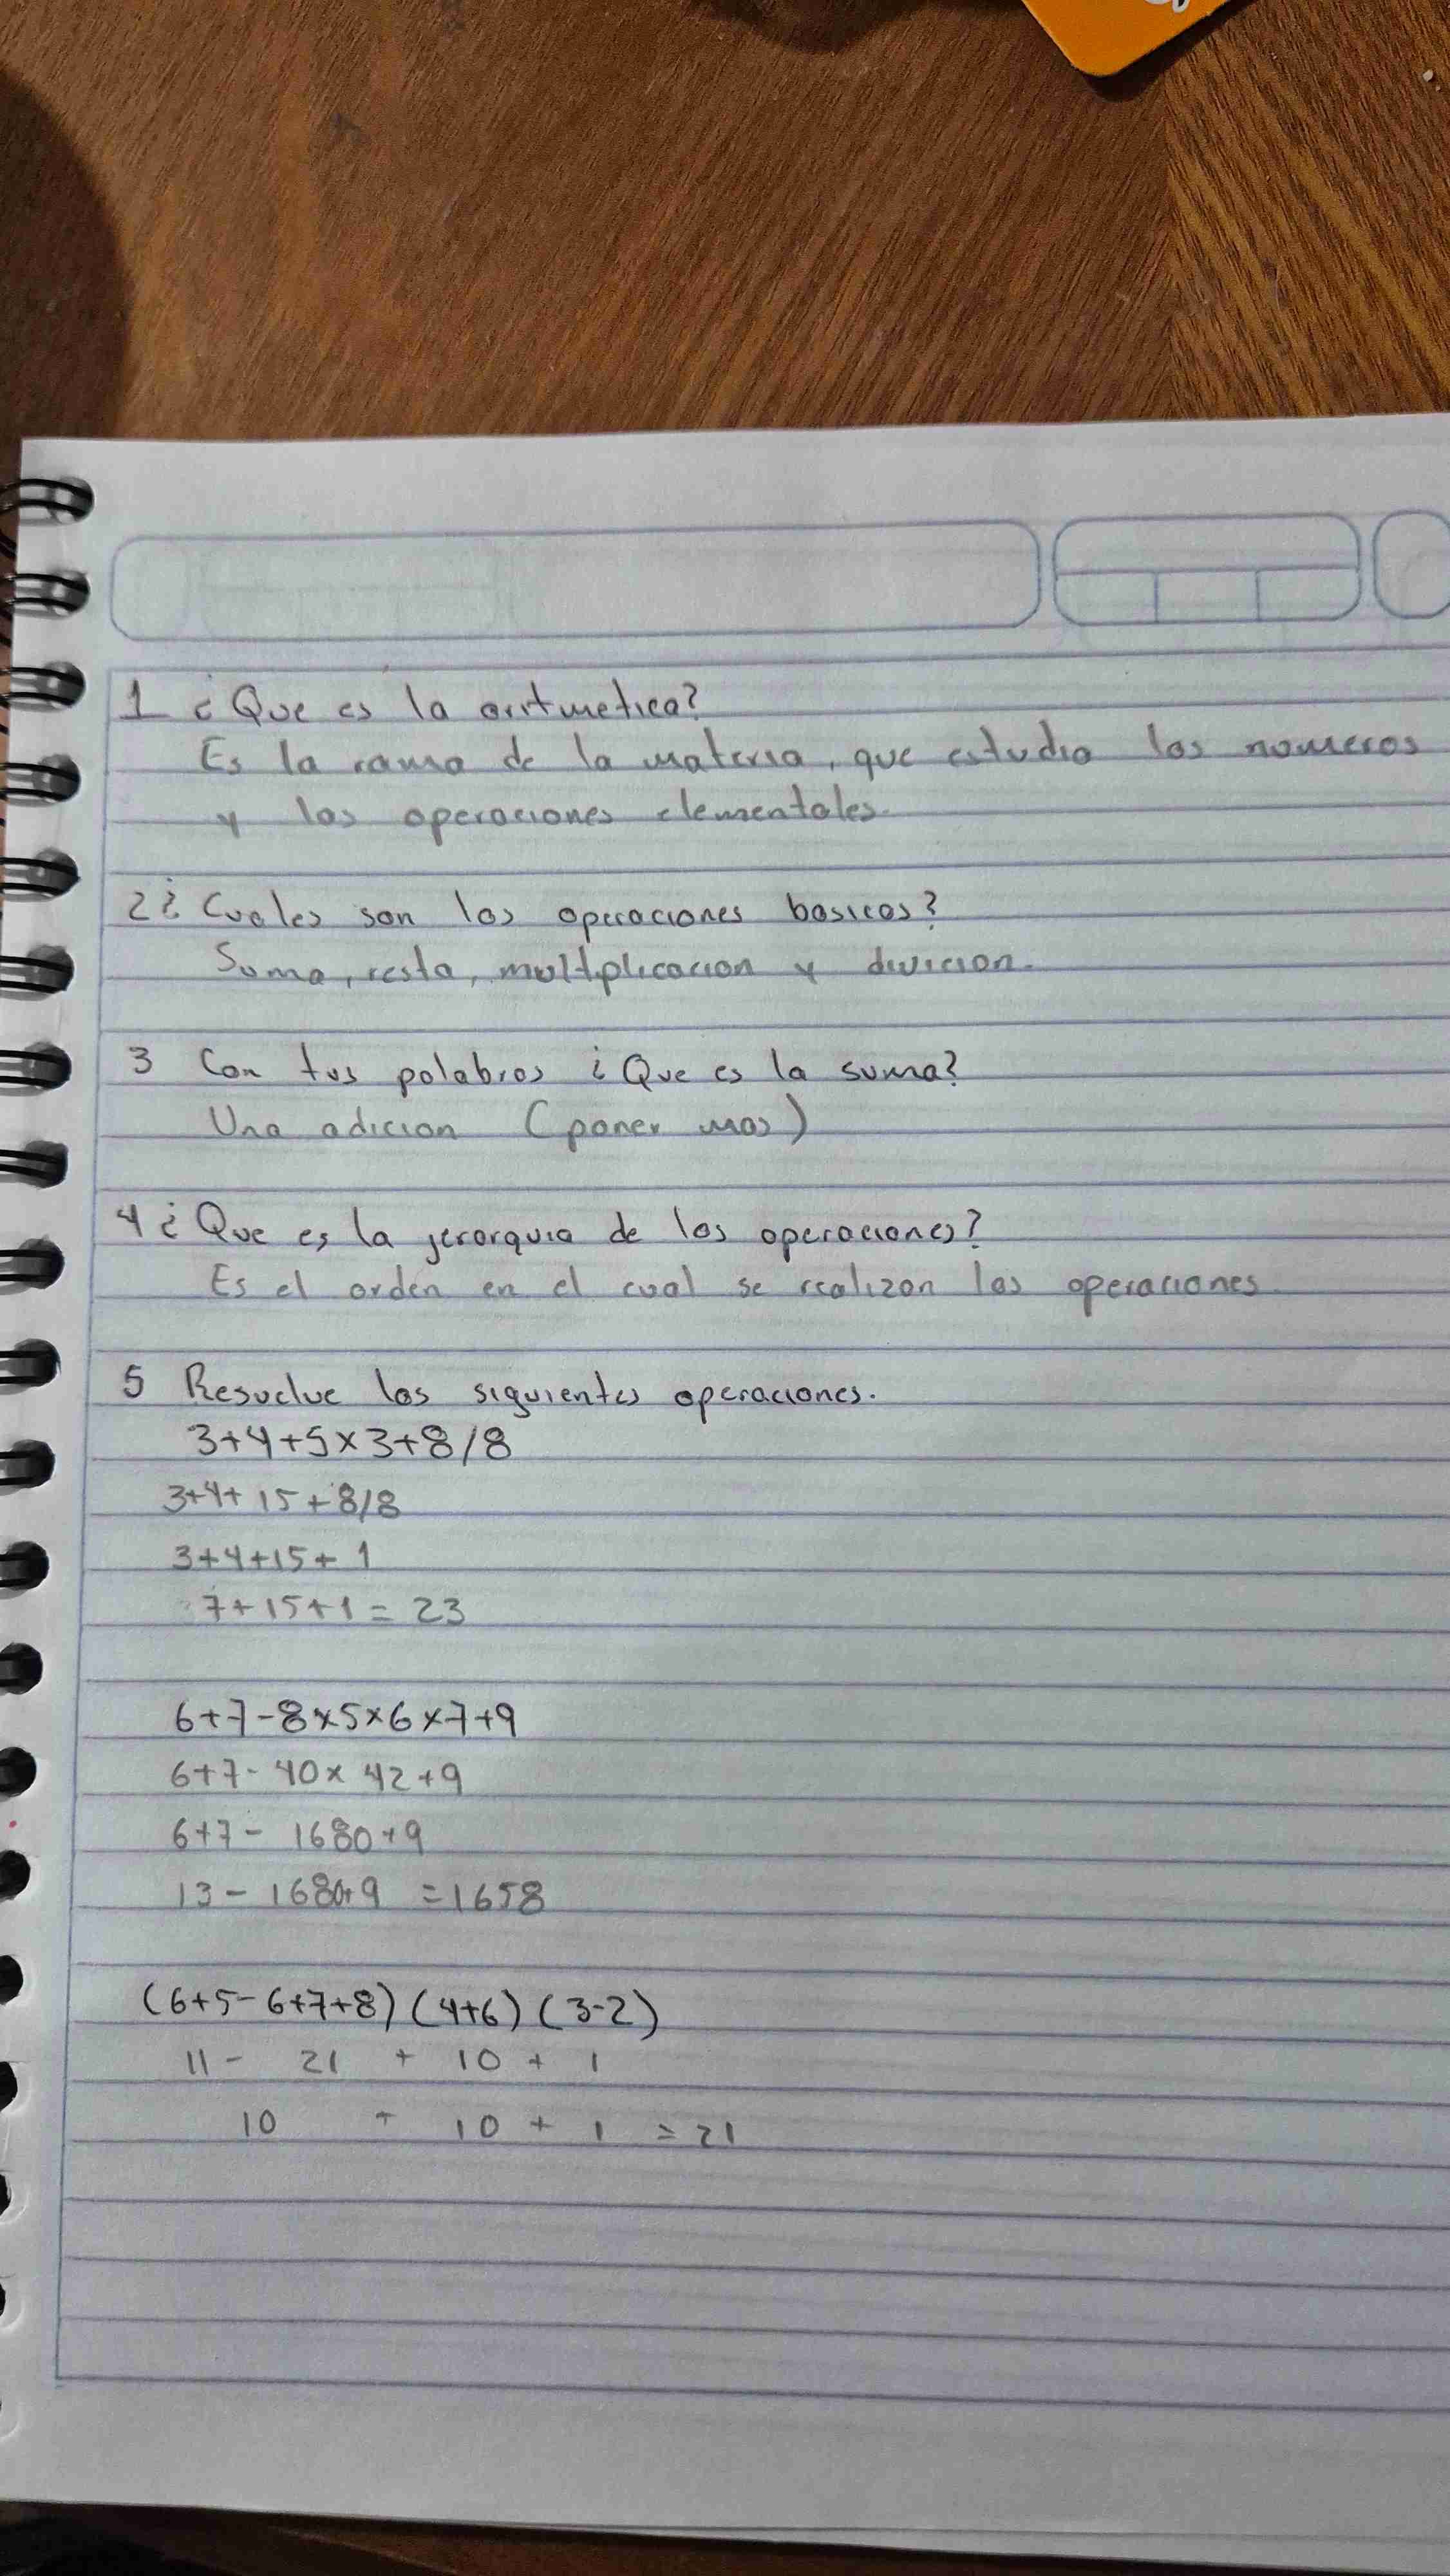 1 ¿Que es la aritmetica?
Es la rama de la materia, que estudia los numeros
y las operaciones elementales.
2 ¿Cuales son las operaciones basicas?
Suma, resta, multiplicacion y divicion.
3 Con tus palabras ¿Que es la suma?
Una adicion (poner mas)
4 ¿Que es la jerarquia de las operaciones?
Es el orden en el cual se realizan las operaciones
5 Resuelve las siguientes operaciones.
3+4+5x3+8/8
3+4+15+8/8
3+4+15+1
7+15+1=23
6+7-8x5x6x7+9
6+7-40x42+9
6+7-1680+9
13-1680+9 =1658
(6+5-6+7+8)(4+6)(3-2)
11- 21 + 10 + 1
10 + 10 + 1 = 21